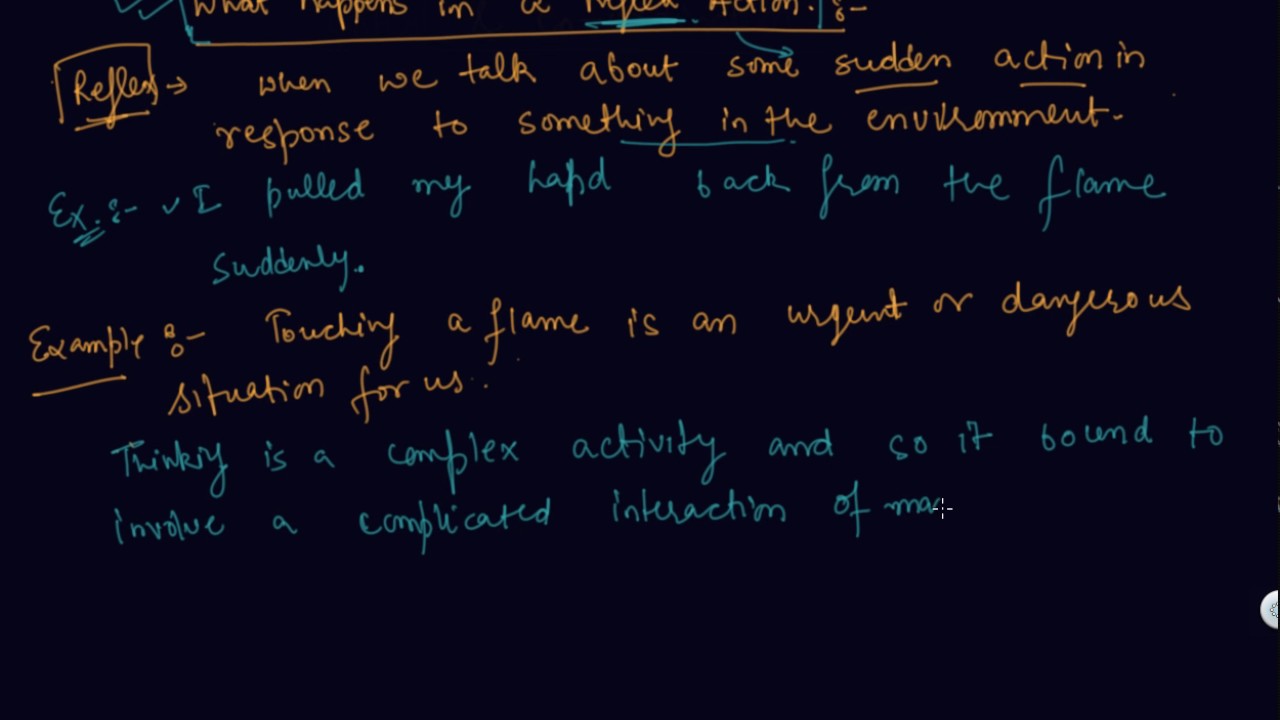 What happens in a Reflex Action. :-
Reflex → when we talk about some sudden action in
response to something in the environment.
Ex. :- ✓ I pulled my hand back from the flame
suddenly.
Example :- Touching a flame is an urgent or dangerous
situation for us.
Thinking is a complex activity and so it bound to
involve a complicated interaction of ma